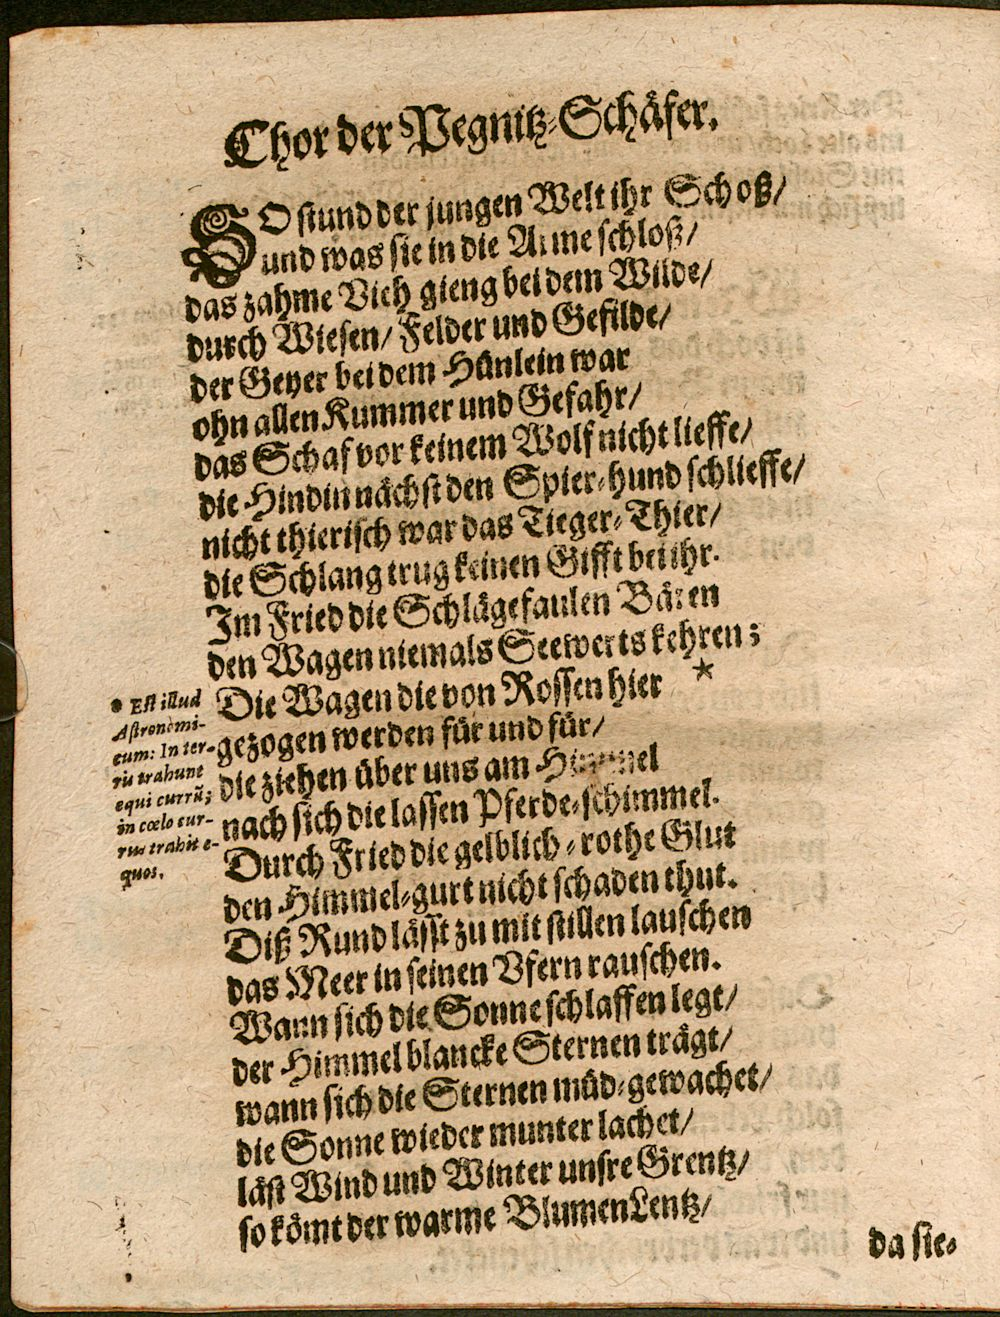 Chor der Pegnitz-Schäfer.
SO stund der jungen Welt ihr Schoß/
und was sie in die Arme schloß/
das zahme Vieh gieng bei dem Wilde/
durch Wiesen/ Felder und Gefilde/
der Geyer bei dem Hünlein war
ohn allen Kummer und Gefahr/
das Schaf vor keinem Wolf nicht lieffe/
die Hindin nächst den Spier-hund schlieffe/
nicht thierisch war das Tieger-Thier/
die Schlang trug keinen Gifft bei ihr.
Im Fried die Schlägefaulen Bären
den Wagen niemals Seewerts kehren;
Die Wagen die von Rossen hier *
gezogen werden für und für/
die ziehen über uns am Himmel
nach sich die lassen Pferde-schimmel.
Durch Fried die gelblich-rothe Glut
den Himmel-gurt nicht schaden thut.
Diß Rund lässt zu mit stillen lauschen
das Meer in seinen Vfern rauschen.
Wann sich die Sonne schlaffen legt/
der Himmel blancke Sternen trägt/
wann sich die Sternen müd-gewachet/
die Sonne wieder munter lachet/
läst Wind und Winter unsre Grentz/
so kömt der warme BlumenLentz/
da sie-
* Est illud
Astronomi-
cum: In ter-
ris trahunt
equi currũ;
in cœlo cur-
rus trahit e-
quos.